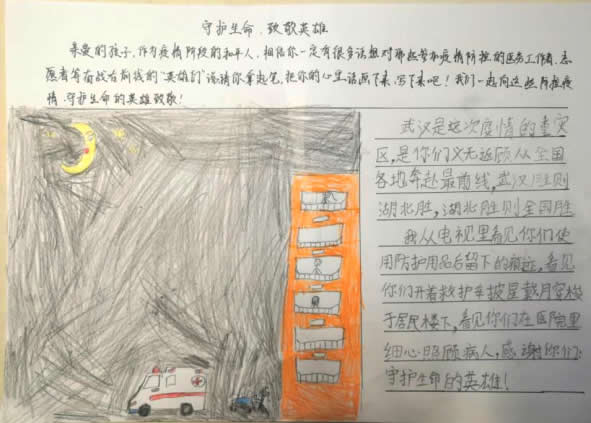 守护生命、致敬英雄
亲爱的孩子，作为疫情阶段的和平人，相信你一定有很多话想对那些参加疫情防控的医务工作者、志
愿者等奋战在前线的“英雄们”说，请你拿起笔，把你的心里话画下来、写下来吧！我们一起向这些防控疫
情、守护生命的英雄致敬！
武汉是这次疫情的重灾
区，是你们义无返顾从全国
各地奔赴最前线，武汉胜则
湖北胜，湖北胜则全国胜
我从电视里看见你们使
用防护用品后留下的痕迹，看见
你们开着救护车披星戴月穿梭
于居民楼下，看见你们在医院里
细心照顾病人，感谢你们
守护生命的英雄！